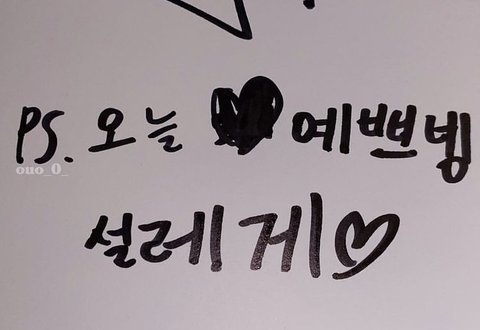 PS. 오늘 ♥ 예쁘넹
ouo_0_
설레게♡